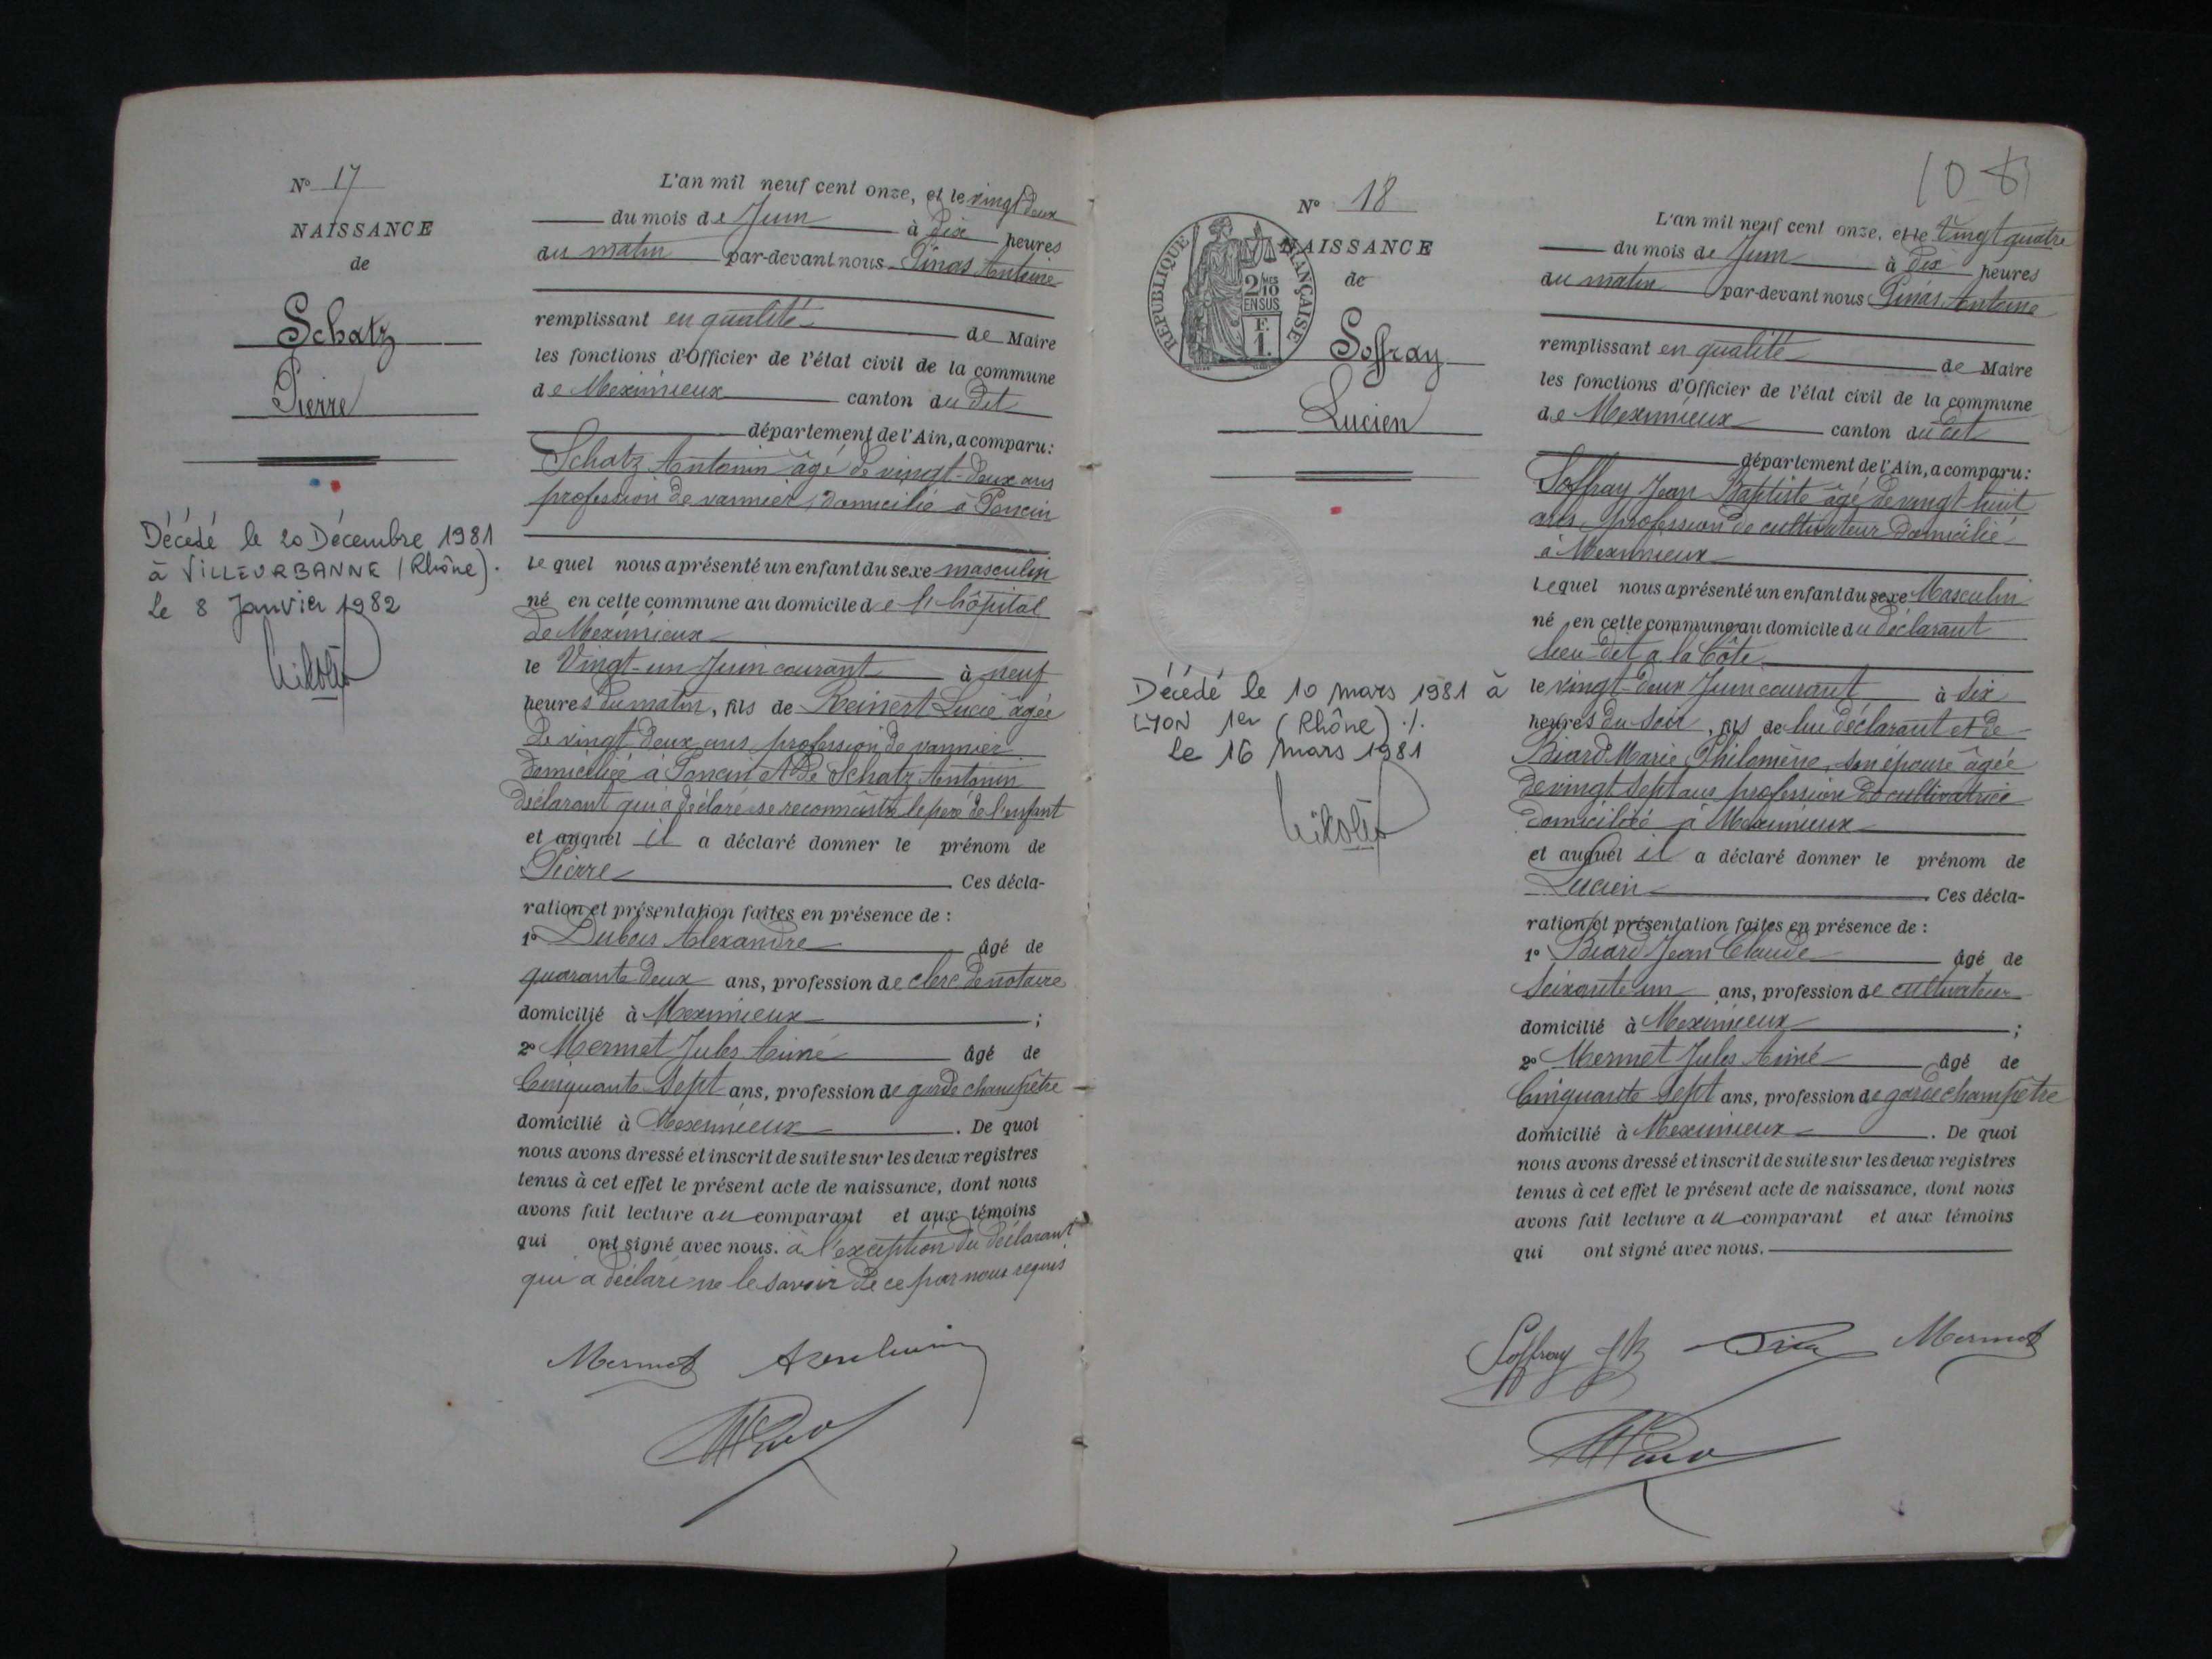 N° 17
NAISSANCE
de
Schatz
Pierre
Décédé le 20 Décembre 1981
à VILLEURBANNE (Rhône).
Le 8 Janvier 1982
L'an mil neuf cent onze, et le vingt deux
du mois de Juin à dix heures
du matin par-devant nous Pinas Antoine
remplissant en qualité de Maire
les fonctions d'Officier de l'état civil de la commune
de Meximieux canton du dit
département de l'Ain, a comparu:
Schatz Antonin âgé de vingt-deux ans
profession de vannier, domicilié à Poncin
lequel nous a présenté un enfant du sexe masculin
né en cette commune au domicile de l'hôpital
de Meximieux
le Vingt-un Juin courant à neuf
heures du matin, fils de Reinert Lucie âgée
de vingt deux ans profession de vannier
domiciliée à Poncin et de Schatz Antonin
déclarant qui a déclaré se reconnaître le père de l'enfant
et auquel il a déclaré donner le prénom de
Pierre Ces décla-
ration et présentation faites en présence de :
1° Dubois Alexandre âgé de
quarante deux ans, profession de clerc de notaire
domicilié à Meximieux ;
2° Mermet Jules Aimé âgé de
Cinquante Sept ans, profession de garde champêtre
domicilié à Meximieux . De quoi
nous avons dressé et inscrit de suite sur les deux registres
tenus à cet effet le présent acte de naissance, dont nous
avons fait lecture au comparant et aux témoins
qui ont signé avec nous. à l'exception du déclarant
qui a déclaré ne le savoir de ce par nous requis
Mermet
10 8
N° 18
REPUBLIQUE FRANÇAISE
2/10 MES
EN SUS
F.
1.
NAISSANCE
de
Soffray
Lucien
Décédé le 10 mars 1981 à
LYON 1er (Rhône) ./.
Le 16 mars 1981
L'an mil neuf cent onze, et le Vingt quatre
du mois de Juin à dix heures
du matin par-devant nous Pinas Antoine
remplissant en qualité de Maire
les fonctions d'Officier de l'état civil de la commune
de Meximieux canton du dit
département de l'Ain, a comparu:
Soffray Jean Baptiste âgé de vingt huit
ans, profession de cultivateur domicilié
à Meximieux
lequel nous a présenté un enfant du sexe Masculin
né en cette commune au domicile du déclarant
lieu dit a la Côte
le vingt-deux Juin courant à dix
heures du soir, fils de lui déclarant et de
Biard Marie Philomène, son épouse âgée
de vingt sept ans profession de cultivatrice
domiciliée à Meximieux
et auquel il a déclaré donner le prénom de
Lucien . Ces décla-
ration et présentation faites en présence de :
1° Biard Jean Claude âgé de
Soixante un ans, profession de cultivateur
domicilié à Meximieux ;
2° Mermet Jules Aimé âgé de
Cinquante Sept ans, profession de garde champêtre
domicilié à Meximieux . De quoi
nous avons dressé et inscrit de suite sur les deux registres
tenus à cet effet le présent acte de naissance, dont nous
avons fait lecture au comparant et aux témoins
qui ont signé avec nous.
Soffray JB Mermet